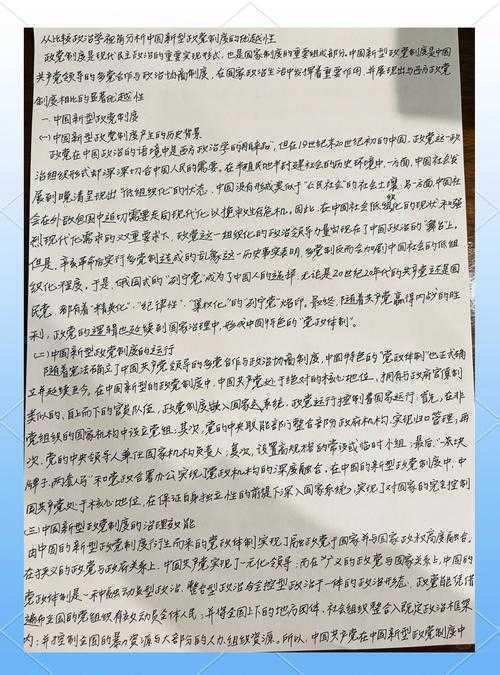 从比较政治学视角分析中国新型政党制度的优越性
政党制度是现代民主政治的重要实现形式，也是国家制度的重要组成部分。中国新型政党制度是中国
共产党领导的多党合作与政治协商制度，在国家政治生活中发挥着重要作用，并展现出与西方政党
制度相比的显著优越性
一.中国新型政党制度
(一)中国新型政党制度产生的历史背景
政党在中国政治的语境中是西方政治学的"舶来品"，但在19世纪末20世纪初的中国，政党这一政
治组织形式却深深切合中国人民的需要。在半殖民地半封建社会的历史环境中，一方面，中国社会发
展到晚清呈现出"低组织化"的状态，中国没有形成类似于"公民社会"的社会土壤；另一方面，中国社
会在外敌包围中迫切需要走向现代化以挽救生存危机。因此，在中国社会低组织化的现状和强
烈现代化需求的双重要求下，政党这一组织化的政治领导力量出现在了中国政治的"舞台"上。
但是，辛亥革命后实行多党制造成的乱象这一历史事实表明，多党制反而会加剧中国社会的低组
织化程度。于是，"俄国式的"列宁党"成为了中国人的选择，无论是20世纪20年代的共产党还是国
民党，都有着"精英化"、"纪律性"、"集权化"的"列宁党"烙印。最终，随着共产党赢得内战的胜
利，政党的逻辑也延续到国家治理中，形成中国特色的"党政体制"。
(二)中国新型政党制度的运行
随着宪法确立了中国共产党领导的多党合作与政治协商制度，中国特色的"党政体制"也正式确
立并延续至今。在中国新型政党制度中，中国共产党处于绝对的核心地位，拥有与政府官僚制
类似的、自上而下的官员队伍，政党制度嵌入国家系统，政党运行控制着国家运行：首先，在非
党组织的国家机构中设立党组；其次，党的中央职能部门整合各部政府机构，实现归口管理；再
次，党的中央领导人兼任国家机构负责人；其次，设置高规格的常设或临时小组；最后，"一块
牌子两套人马"和党政合署办公实现了党政机构的深度融合。在中国的新型政党制度中，中
国共产党处于核心地位，在保证自身独立性的前提下深入国家系统，实现了对国家的完全控制
(三)中国新型政党制度的治理效能
由中国的新型政党制度衍生而来的党政体制实现了融政党于国家并与国家政权高度融合。
在狭义的政党与政府关系上，中国共产党实现了一元化领导；而在广义的政党与国家关系上，中国的
党政体制是一种融动员型政治、整合型政治与全控型政治于一体的政治形态，政党能凭借
遍布全国的党组织有效动员全体人民；并将全国上下的地方团体、社会组织整合入既定政治框架
内；并控制全国的暴力资源与大部分的人力、组织资源。所以，中国共产党在中国新型政党制度中